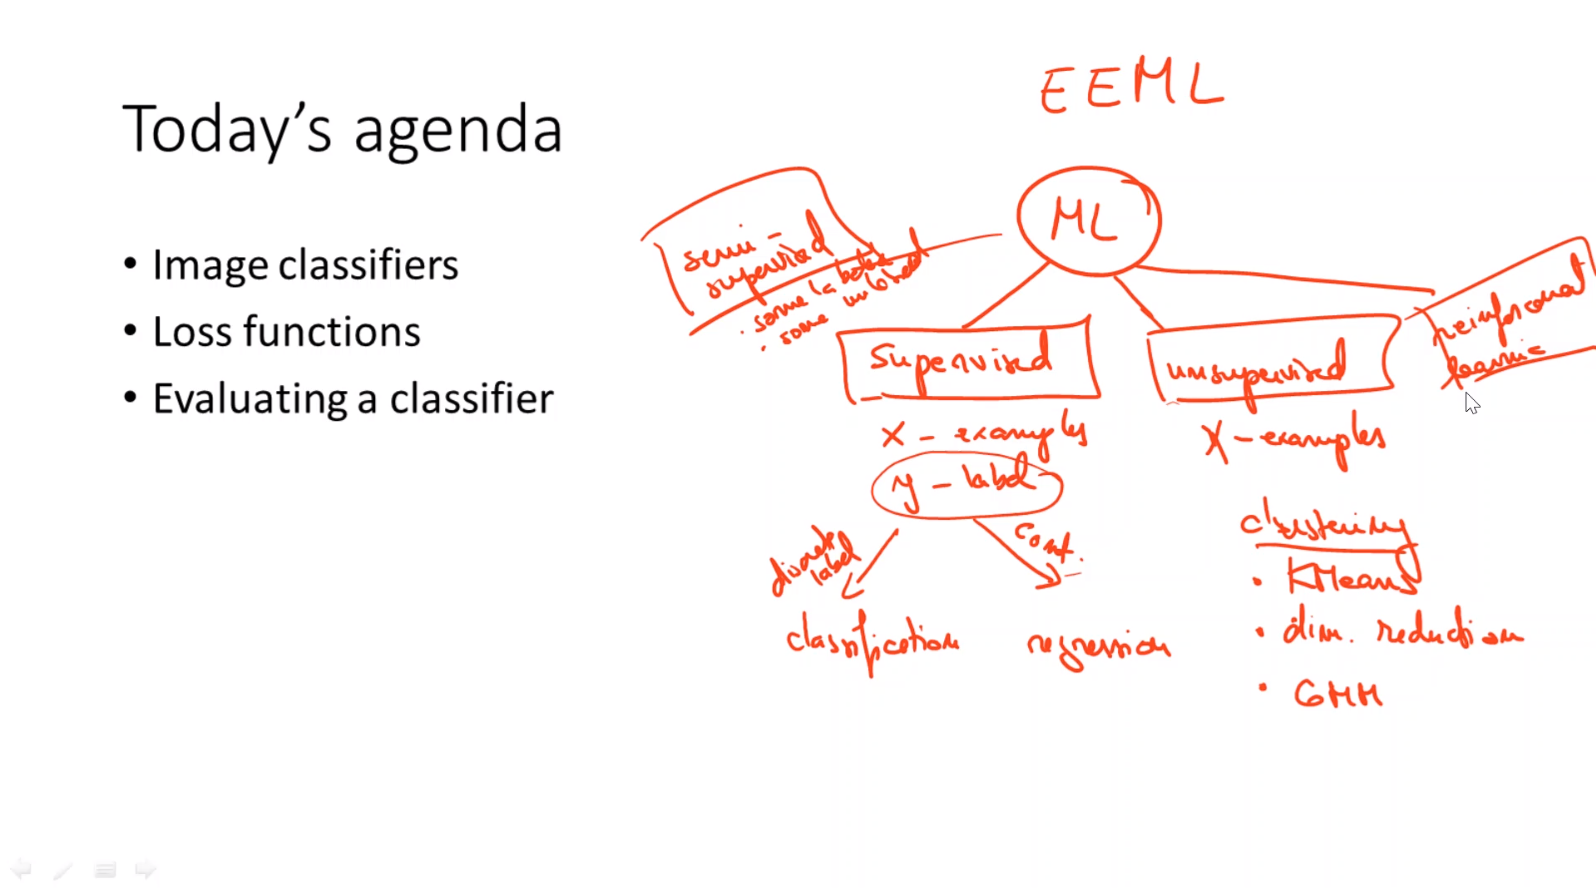 Today's agenda
• Image classifiers
• Loss functions
• Evaluating a classifier
EEML
ML
semi-
supervised
• some labeled
• some unlabeled
supervised
x - examples
y - label
discrete
label
cont.
classification
regression
unsupervised
X - examples
clustering
• KMeans
• dim. reduction
• GMM
learning